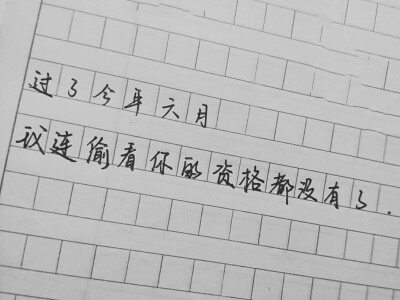 过了今年六月
我连偷看你的资格都没有了.